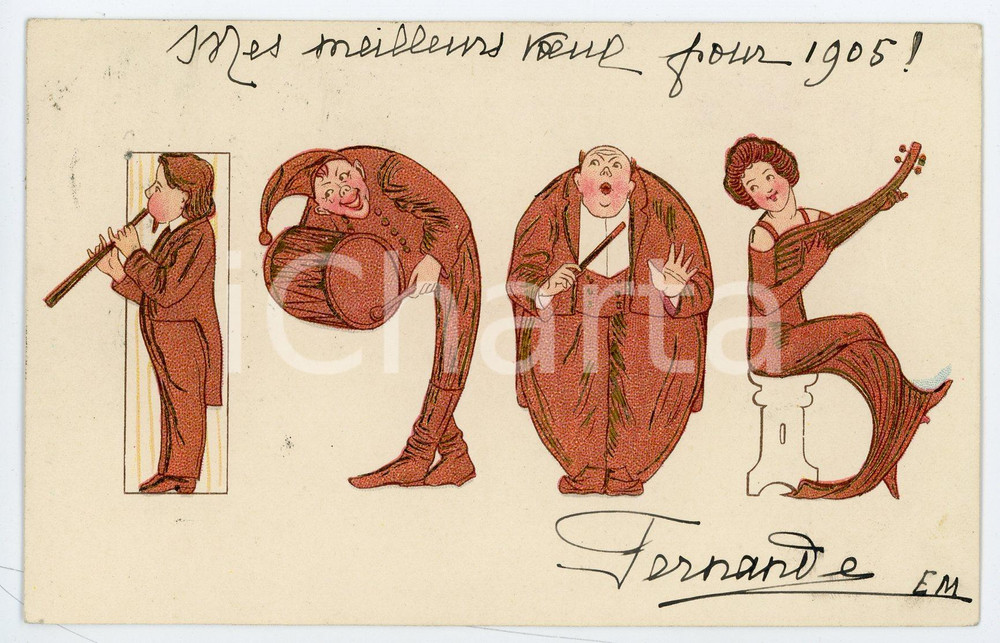 Mes meilleurs vœux pour 1905!
iCharta
Fernande
EM